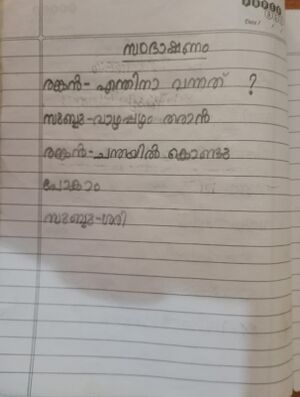 സംഭാഷണം
രങ്കൻ- എന്തിനാ വന്നത് ?
സുബ്ബു-വാഴപ്പഴം തരാൻ
രങ്കൻ-ചന്തയിൽ കൊണ്ടു
പോകാം
സുബ്ബു-ശരി